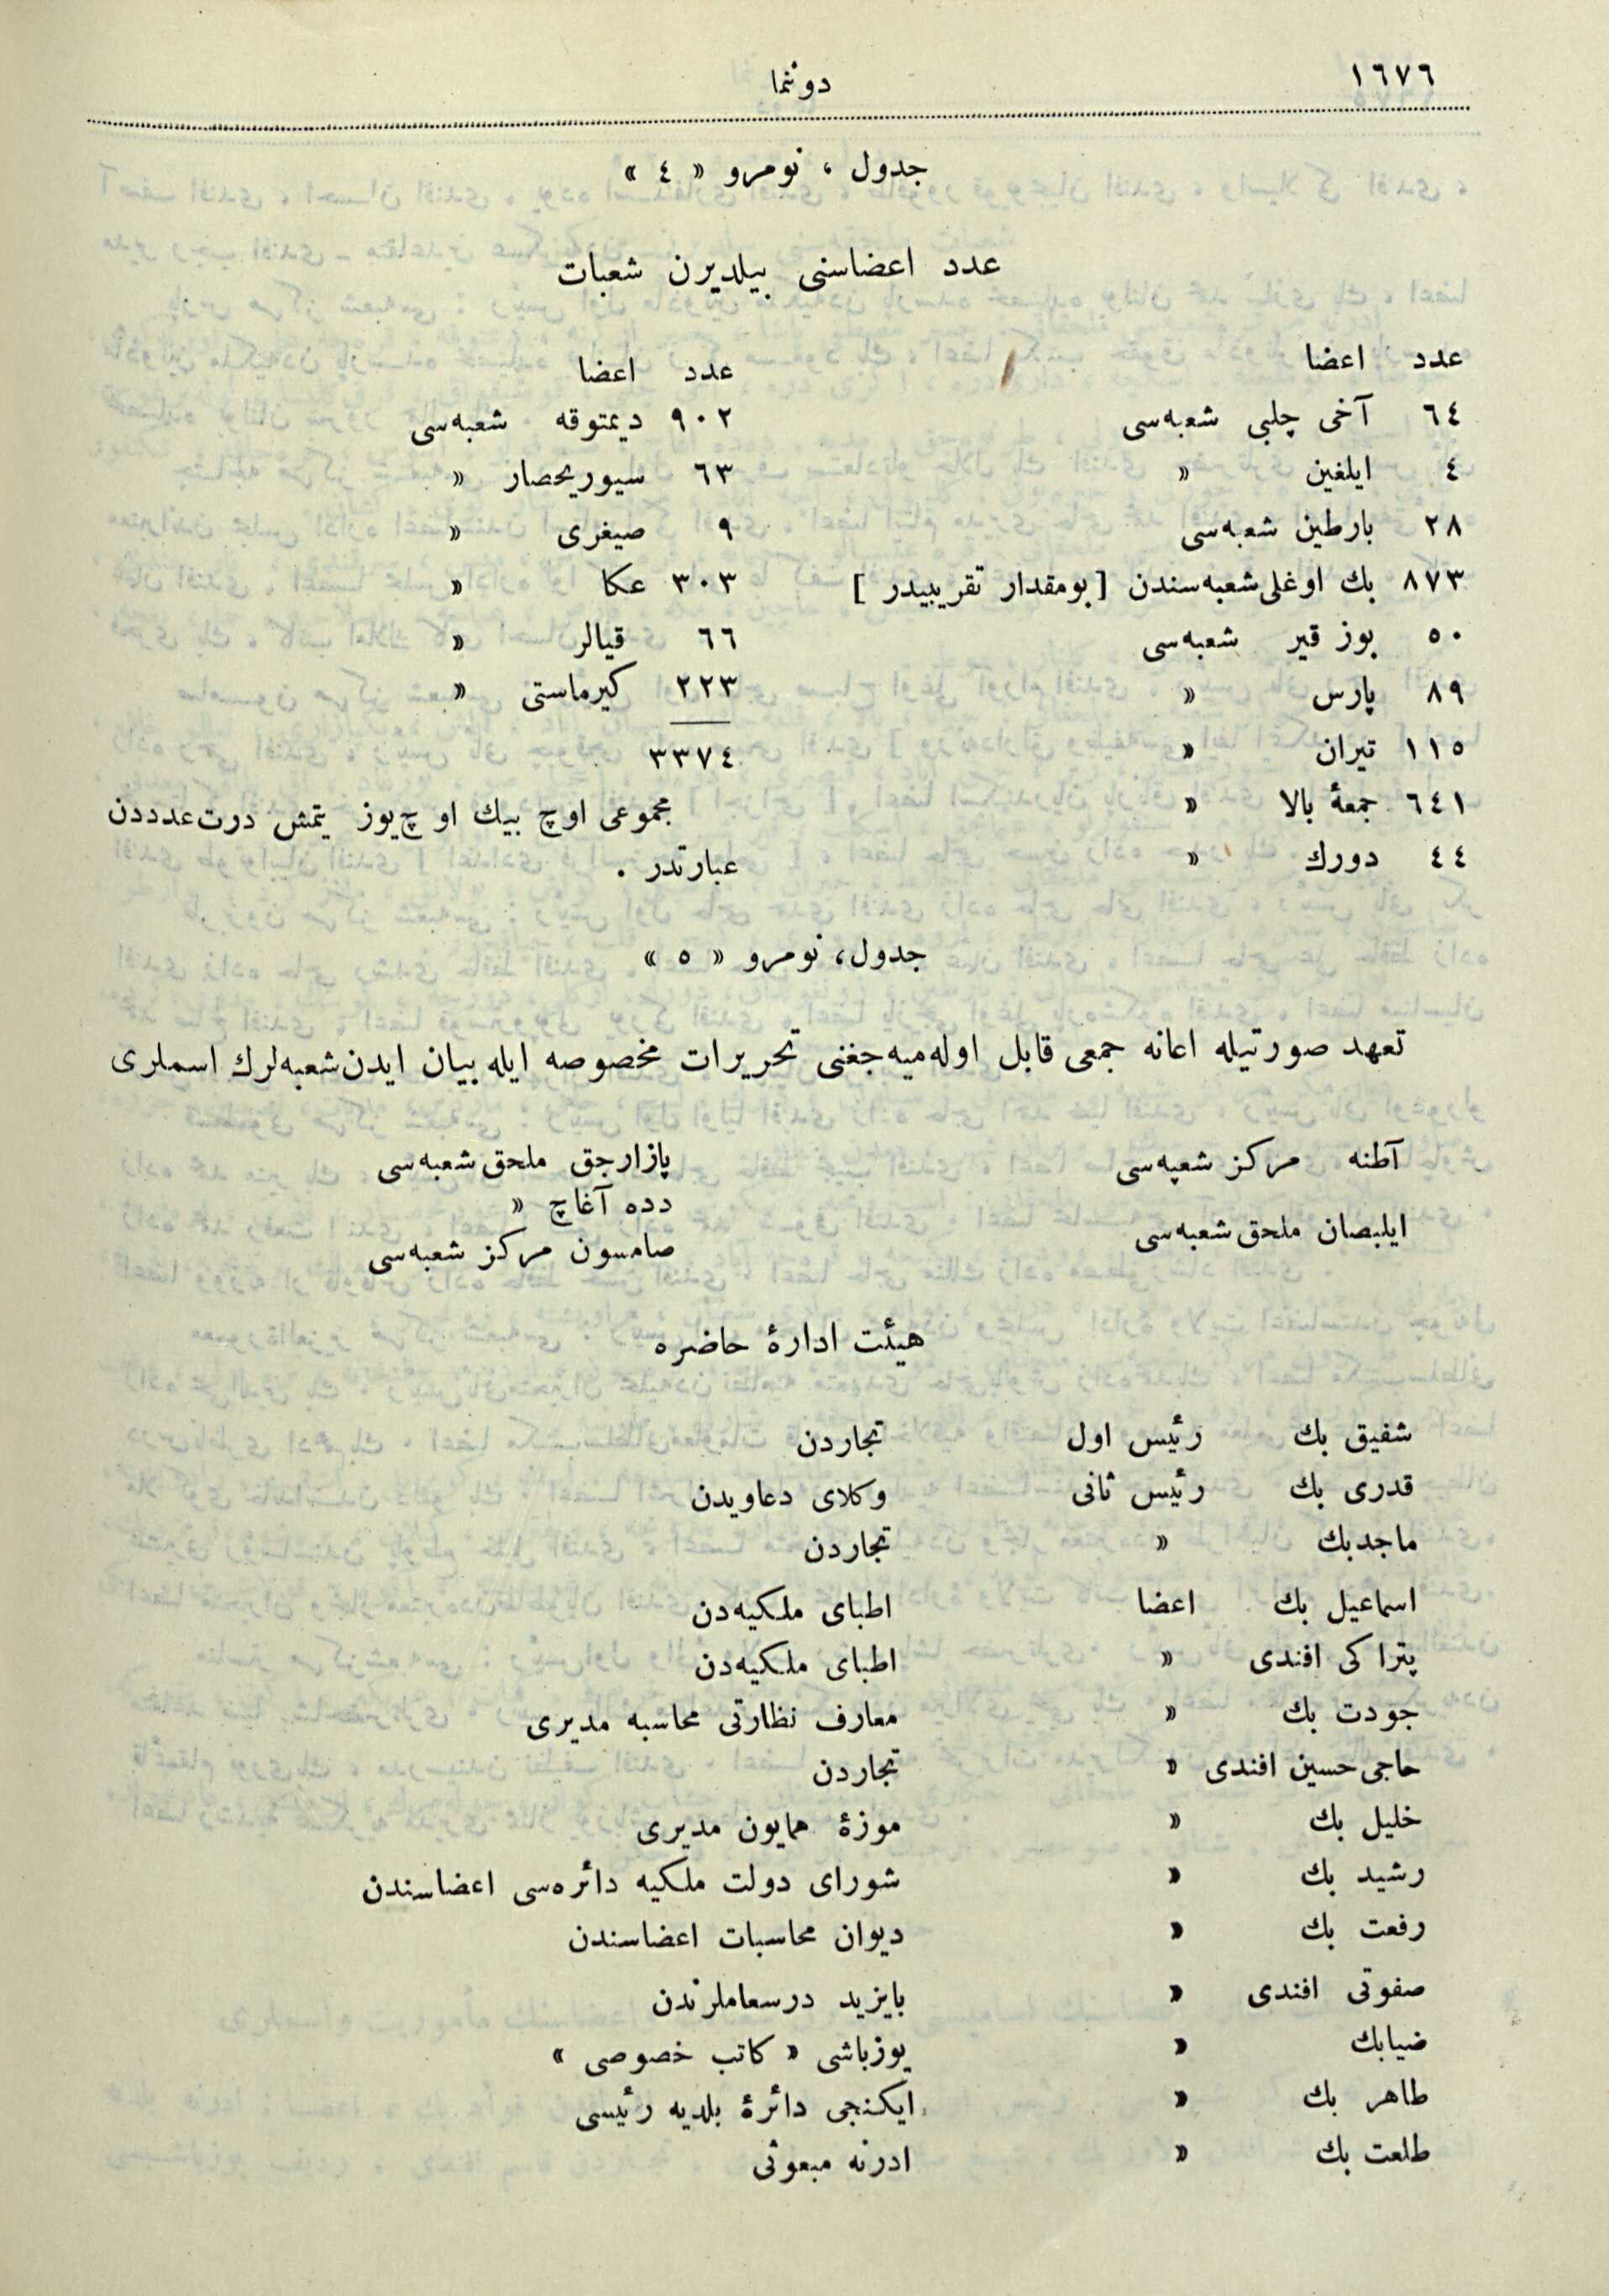 ١٦٧٦
دوننما
جدول ، نومرو « ٤ »
عدد اعضاسنی بیلدیرن شعبات
عدد اعضا
٦٤ آخی چلبی شعبه‌سی
٤ ایلغین «
٢٨ بارطین شعبه‌سی
٨٧٣ بك اوغلی شعبه‌سندن [ بومقدار تقریبیدر ]
٥٠ بوز قیر شعبه‌سی
٨٩ پارس «
١١٥ تیران «
٦٤١ جمعهٔ بالا «
٤٤ دورك «
عدد اعضا
٩٠٢ دیمتوقه شعبه‌سی
٦٣ سیوریحصار «
٩ صیغری «
٣٠٣ عكا «
٦٦ قیالر «
٢٢٣ كیرماستی «
٣٣٧٤
مجموعی اوچ بیك اوچ‌یوز یتمش درت عدددن
عبارتدر .
جدول، نومرو « ٥ »
تعهد صورتیله اعانه جمعی قابل اوله‌میه‌جغنی تحریرات مخصوصه ایله بیان ایدن شعبه‌لرك اسملری
آطنه مركز شعپه‌سی
ایلبصان ملحق شعبه‌سی
پازارجق ملحق شعبه‌سی
دده آغاچ «
صامسون مركز شعبه‌سی
هیئت ادارهٔ حاضره
شفیق بك رئیس اول تجاردن
قدری بك رئیس ثانی وكلای دعاویدن
ماجدبك « تجاردن
اسماعیل بك اعضا اطبای ملكیه‌دن
پتراكی افندی « اطبای ملكیه‌دن
جودت بك « معارف نظارتی محاسبه مدیری
حاجی حسین افندی « تجاردن
خلیل بك « موزهٔ همایون مدیری
رشید بك « شورای دولت ملكیه دائره‌سی اعضاسندن
رفعت بك « دیوان محاسبات اعضاسندن
صفوتی افندی « بایزید درسعاملرندن
ضیابك « یوزباشی « كاتب خصوصی »
طاهر بك « ایكنجی دائرهٔ بلدیه رئیسی
طلعت بك « ادرنه مبعوثی